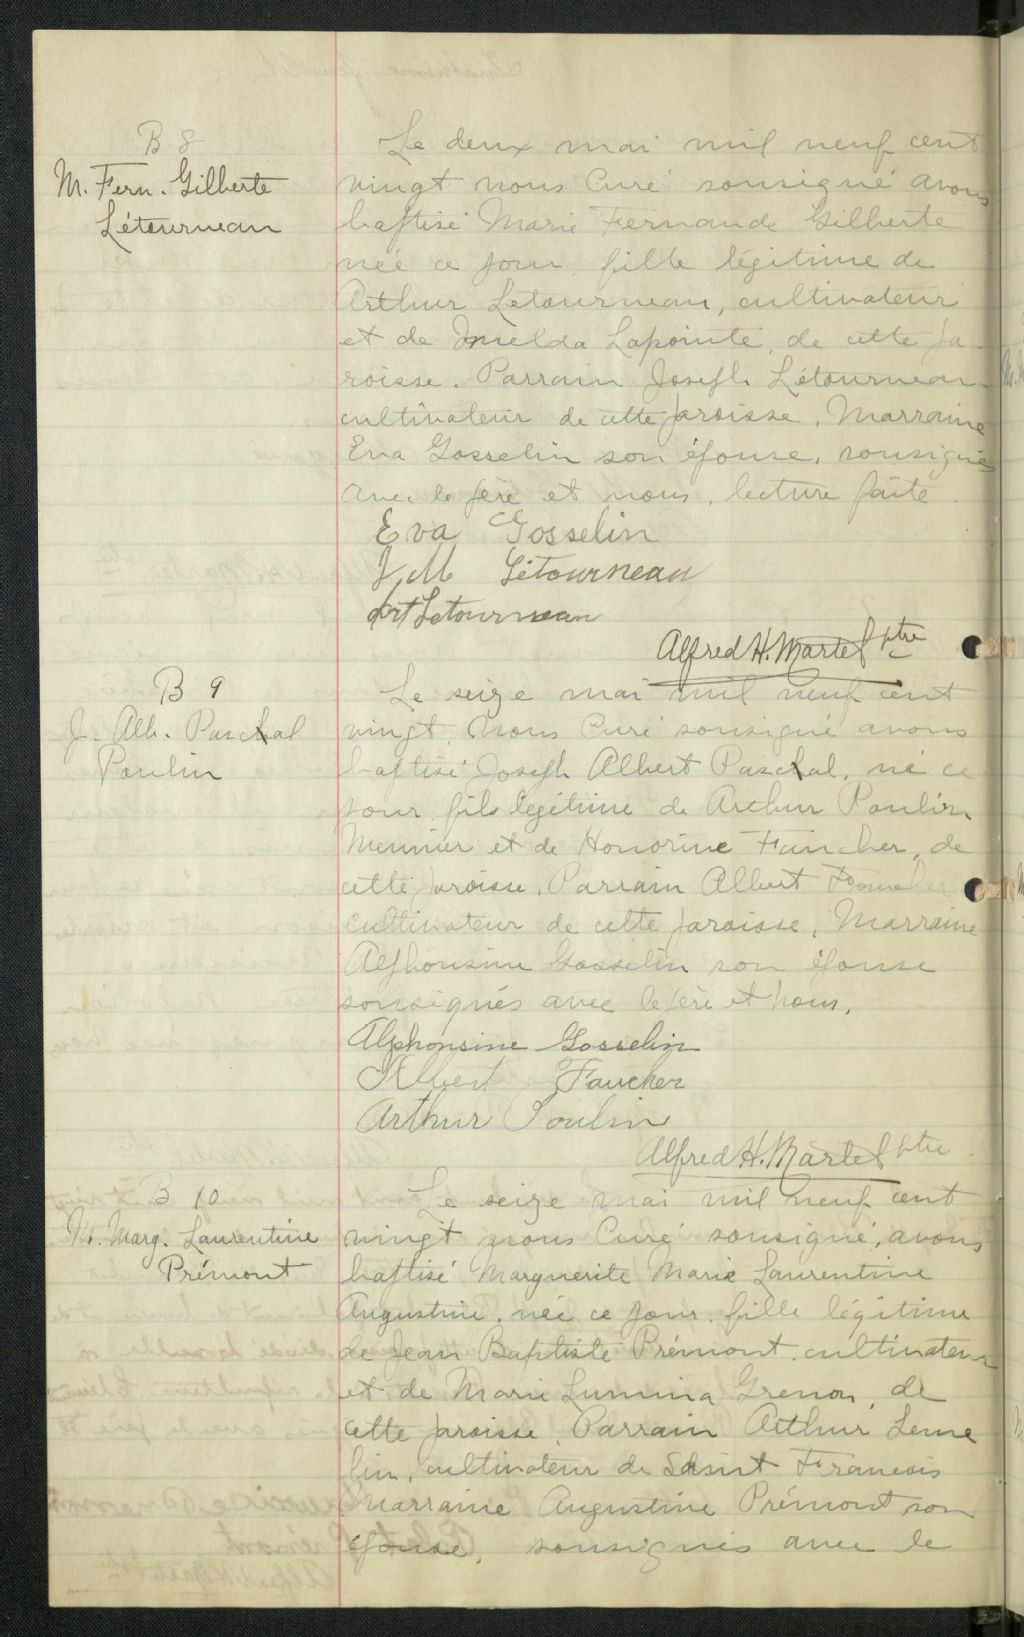 B 8
M. Fern. Gilberte
Létourneau
Le deux mai mil neuf cent
vingt nous Curé sousigné avons
baptisé Marie Fernande Gilberte
née ce jour, fille légitime de
Arthur Letourneau, cultivateur
et de Imelda Lapointe, de cette pa
roisse. Parrain Joseph Létourneau
cultivateur de cette paroisse, Marraine
Eva Gosselin son épouse, sousignés
avec le père et nous, lecture faite.
Eva Gosselin
J. M Létourneau
Art Letourneau
Alfred H. Martel ptre
B 9
J. Alb. Paschal
Poulin
Le seize mai mil neuf cent
vingt, nous Curé sousigné avons
baptisé Joseph Albert Paschal, né ce
jour, fils légitime de Arthur Poulin
Meunier et de Honorine Faucher, de
cette paroisse, Parrain Albert Faucher
cultivateur de cette paroisse, Marraine
Alphonsine Gosselin son épouse
sousignés avec le père et nous.
Alphonsine Gosselin
Albert Faucher
Arthur Poulin
Alfred H. Martel ptre
B 10
M. Marg. Laurentine
Prémont
Le seize mai mil neuf cent
vingt nous Curé sousigné, avons
baptisé Marguerite Marie Laurentine
Augustine, née ce jour, fille légitime
de Jean Baptiste Prémont, cultivateur
et de Marie Lumina Grenon, de
cette paroisse, Parrain Arthur Leme
lin, cultivateur de Saint Francois
Marraine Augustine Prémont son
épouse, sousignés avec le